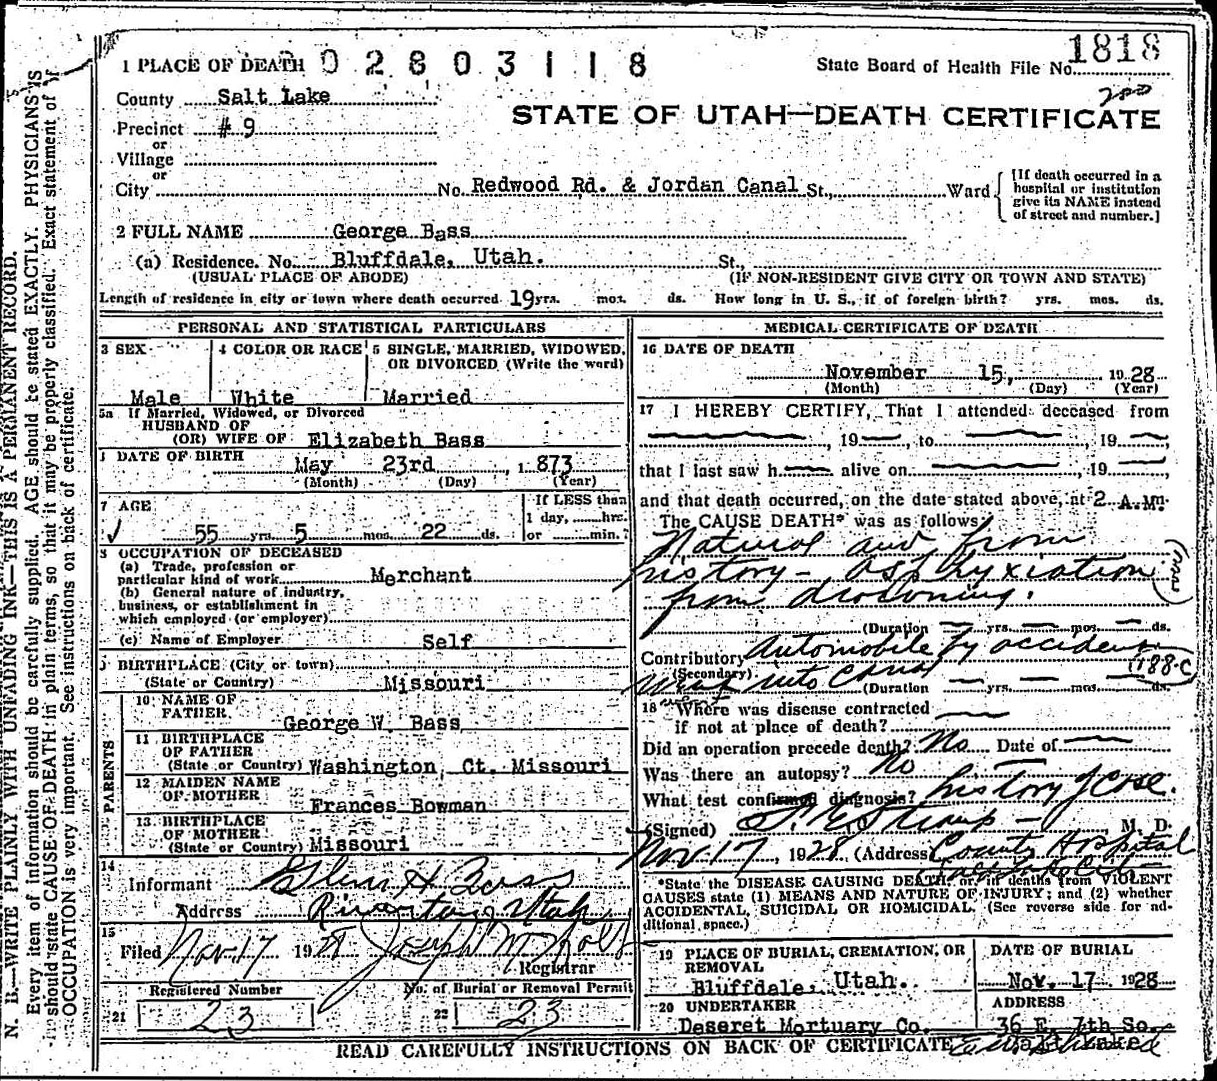 1818
1 PLACE OF DEATH 0 2 8 0 3 1 1 8 State Board of Health File No.
County Salt Lake
STATE OF UTAH—DEATH CERTIFICATE
Precinct #9
or
Village
or
City No. Redwood Rd. & Jordan Canal St., Ward [If death occurred in a hospital or institution give its NAME instead of street and number.]
2 FULL NAME George Bass
(a) Residence. No. Bluffdale, Utah. St.
(USUAL PLACE OF ABODE) (IF NON-RESIDENT GIVE CITY OR TOWN AND STATE)
Length of residence in city or town where death occurred 19 yrs. mos. ds. How long in U. S., if of foreign birth? yrs. mos. ds.
PERSONAL AND STATISTICAL PARTICULARS
3 SEX 4 COLOR OR RACE 5 SINGLE, MARRIED, WIDOWED,
OR DIVORCED (Write the word)
Male White Married
5a If Married, Widowed, or Divorced
HUSBAND OF
(OR) WIFE OF Elizabeth Bass
DATE OF BIRTH May 23rd , 1 873
(Month) (Day) (Year)
7 AGE If LESS than
1 day, hrs.
55 yrs. 5 mos. 22 ds. or min.?
8 OCCUPATION OF DECEASED
(a) Trade, profession or
particular kind of work Merchant
(b) General nature of industry,
business, or establishment in
which employed (or employer)
(c) Name of Employer Self
9 BIRTHPLACE (City or town)
(State or Country) Missouri
PARENTS
10 NAME OF
FATHER George W. Bass
11 BIRTHPLACE
OF FATHER
(State or Country) Washington, Ct. Missouri
12 MAIDEN NAME
OF MOTHER Frances Bowman
13 BIRTHPLACE
OF MOTHER
(State or Country) Missouri
14
Informant Glen H Bass
Address Riverton, Utah
15
Filed Nov. 17 1928 Joseph M.
Registrar
Registered Number No. of Burial or Removal Permit
21 23 22 23
MEDICAL CERTIFICATE OF DEATH
16 DATE OF DEATH
November 15, 1928
(Month) (Day) (Year)
17 I HEREBY CERTIFY, That I attended deceased from
, 19 , to , 19 ,
that I last saw h alive on , 19 ,
and that death occurred, on the date stated above, at 2 A.M.
The CAUSE DEATH* was as follows:
Natural and from
history - asphyxiation
from drowning.
(Duration yrs. mos. ds.
Contributory Automobile by accident
(Secondary) into Canal 188-C
(Duration yrs. mos. ds.
18 Where was disease contracted
if not at place of death?
Did an operation precede death? No Date of
Was there an autopsy? No
What test confirmed diagnosis? history of Case.
(Signed) M. D.
Nov 17, 1928 (Address County Hospital
*State the DISEASE CAUSING DEATH, or, in deaths from VIOLENT
CAUSES state (1) MEANS AND NATURE OF INJURY; and (2) whether
ACCIDENTAL, SUICIDAL OR HOMICIDAL. (See reverse side for additional space.)
19 PLACE OF BURIAL, CREMATION, OR
REMOVAL
Bluffdale, Utah.
DATE OF BURIAL
Nov. 17 1928
20 UNDERTAKER
Deseret Mortuary Co.
ADDRESS
36 E. 7th So.
Salt Lake
READ CAREFULLY INSTRUCTIONS ON BACK OF CERTIFICATE
N. B.—WRITE PLAINLY WITH UNFADING INK—THIS IS A PERMANENT RECORD.
Every item of information should be carefully supplied. AGE should be stated EXACTLY. PHYSICIANS IS
should state CAUSE OF DEATH in plain terms, so that it may be properly classified. Exact statement of
OCCUPATION is very important. See instructions on back of certificate.